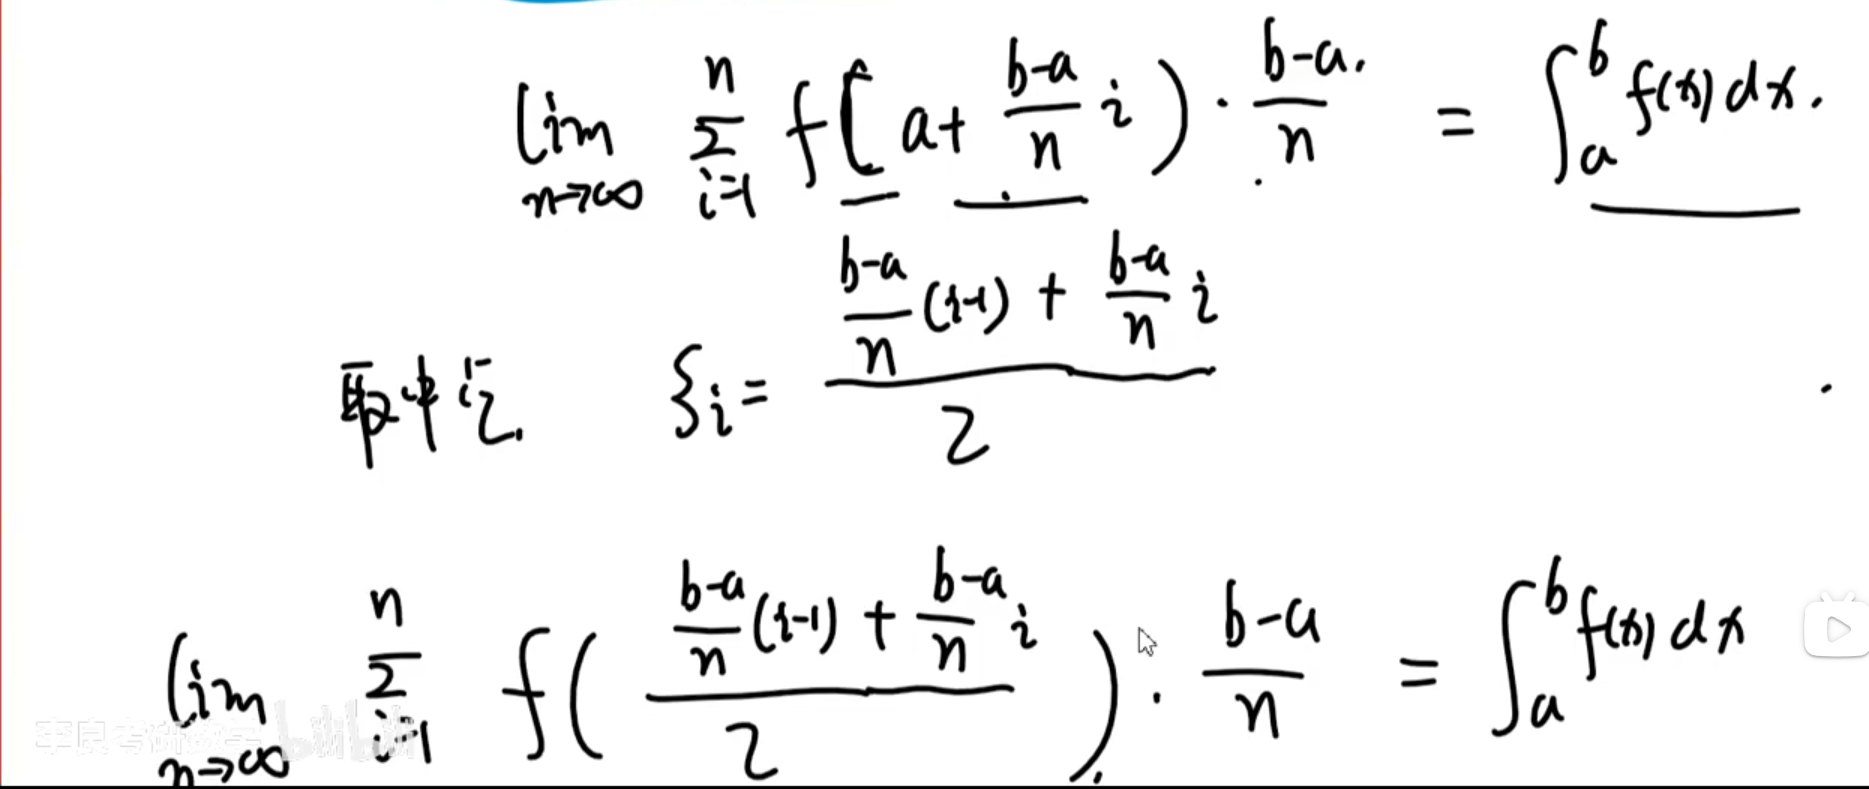 lim_{n→∞} ∑_{i=1}^{n} f(a + \frac{b-a}{n} i) · \frac{b-a}{n} = ∫_a^b f(x) dx.
取中点. ξ_i = \frac{\frac{b-a}{n}(i-1) + \frac{b-a}{n} i}{2}
lim_{n→∞} ∑_{i=1}^{n} f(\frac{\frac{b-a}{n}(i-1) + \frac{b-a}{n} i}{2}) · \frac{b-a}{n} = ∫_a^b f(x) dx
李良考研数学 bilibili